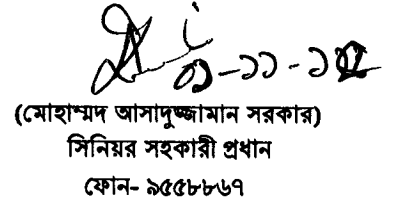 (মোহাম্মদ আসাদুজ্জামান সরকার)
সিনিয়র সহকারী প্রধান
ফোন- ৯৫৫৮৮৬৭